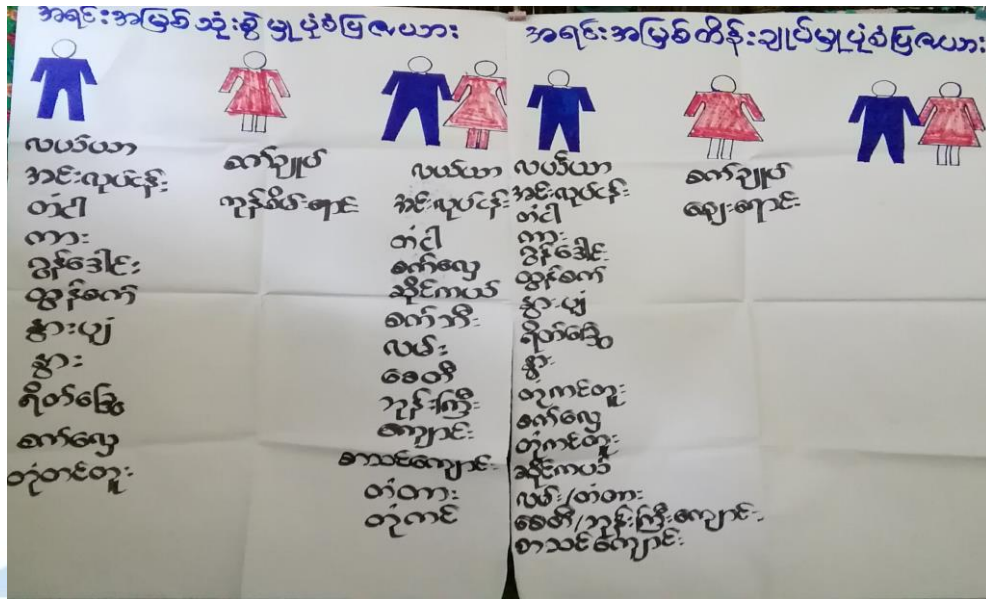 အရင်းအမြစ်သုံးစွဲမှုပုံစံပြဇယား
လယ်ယာ
အင်းလုပ်ငန်း
တံငါ
ကား
ဂွန်ဒေါင်း
ထွန်စက်
နွားပျံ
နွား
ရိတ်ခြွေ
စက်လှေ
တုံတင်တူး
စက်ချုပ်
ကုန်စိမ်းရောင်း
လယ်ယာ
အင်းလုပ်ငန်း
တံငါ
စက်လှေ
ဆိုင်ကယ်
စက်ဘီး
လမ်း
စေတီ
ဘုန်းကြီး
ကျောင်း
စာသင်ကျောင်း
တံတား
တုံကင်
အရင်းအမြစ်ထိန်းချုပ်မှုပုံစံပြဇယား
လယ်ယာ
အင်းလုပ်ငန်း
တံငါ
ကား
ဂွန်ဒေါင်း
ထွန်စက်
နွားပျံ
ရိတ်ခြွေ
နွား
တုံကင်တူး
စက်လှေ
တုံကင်တူး
ဆိုင်ကယ်
လမ်း/တံတား
စေတီ/ဘုန်းကြီးကျောင်း
စာသင်ကျောင်း
စက်ချုပ်
ဈေးရောင်း